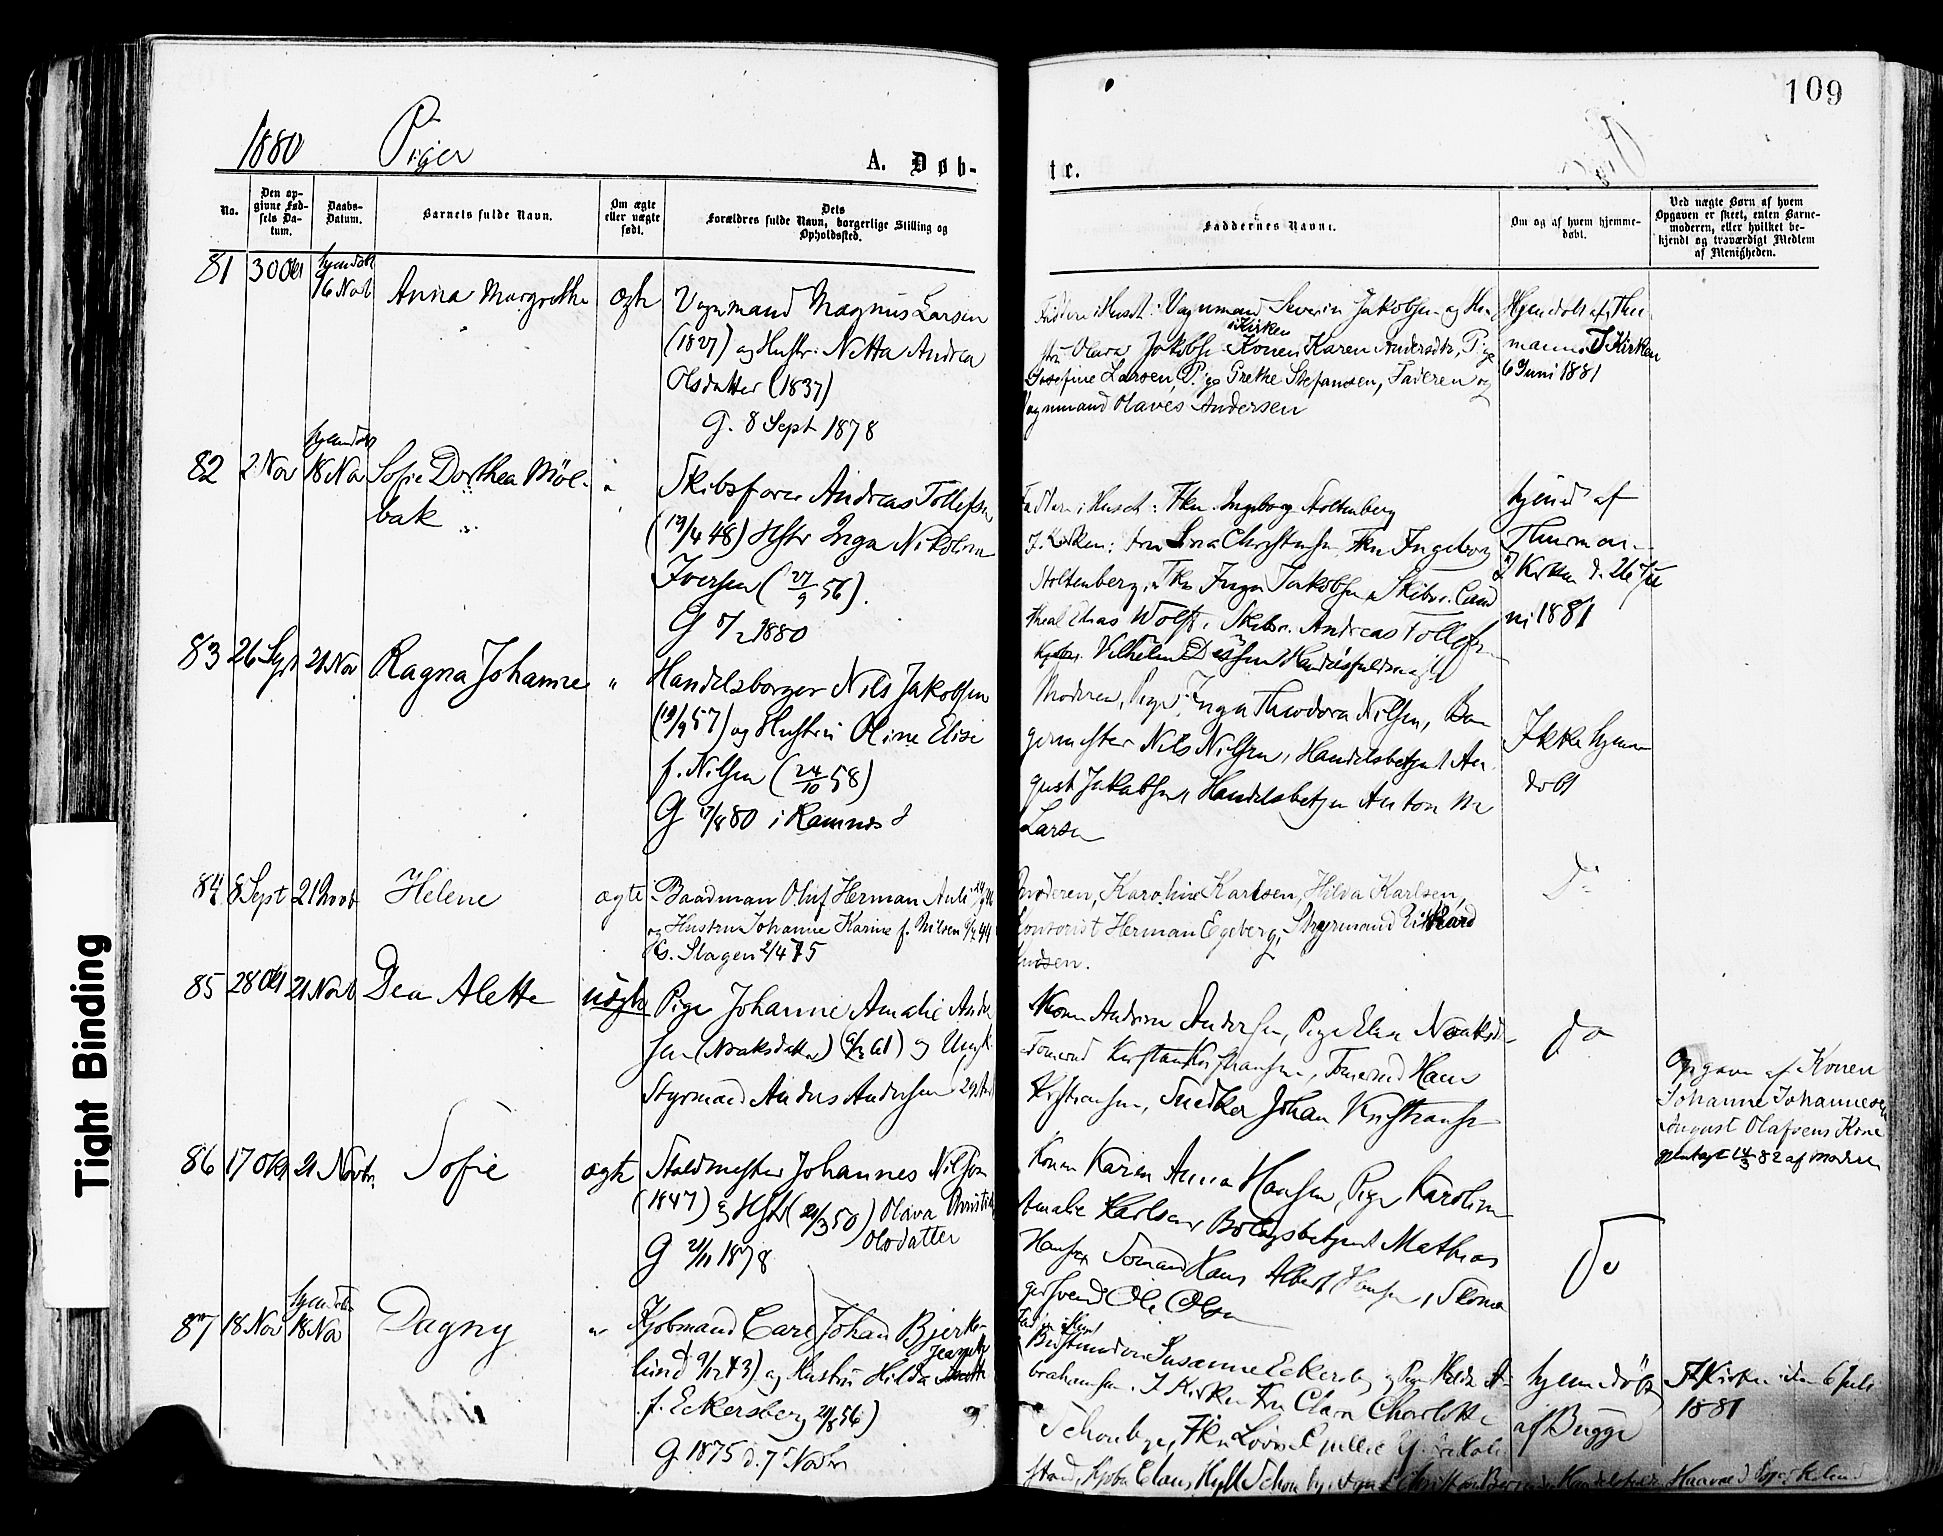 109
1880 Piger
A. Døb-
te.
No.
Den op-
givne Fød-
sels Da-
tum.
Daabs-
Datum.
Barnets fulde Navn.
Om ægte
eller uægte
født.
Dets
Forældres fulde Navn, borgerlige Stilling og
Opholdssted.
Faddernes Navne.
Om og af hvem hjemme-
døbt.
Ved uægte Børn af hvem
Opgaven er skeet, enten Barne-
moderen, eller hvilket be-
kjendt og troværdigt Medlem
af Menigheden.
81 30 Okt
16 Novb
Anna Margrethe
ægte
Magnus Larsen
(1827) og Hustr: Netta Andrea
Olsdatter (1837)
G. 8 Sept 1878
Severin Jakobsen og Hu-
stru Olava Jakobs i Kirken Konen Karen Andersdtr, Pige
Josefine Larsen, Pige Grethe Stefansen, Faderen og
Olaves Andersen
Hjemdøbt af Thur-
mann I Kirken
6 Juni 1881
82 2 Nov
hjemdøbt
18 Nov
Sofie Dorthea Möl-
bak
"
Skibsfører Andreas Tollefsen
(19/4 48) Hstr Inga Nikoline
Iversen (27/9 56).
G 1880
Faddere i Huset: Frkn Ingeborg Stoltenberg
I Kirken: Fru Lina Christensen, Frkn Ingeborg
Stoltenberg, Frkn Inga Jakobsen, Skibsr. Cand
theol Elias Wolff, Skibsr. Andreas Tollefsen
Vilhelm
hjemd af
Thurman
I Kirken d. 26 Ju-
ni 1881
83 26 Sept 21 Nov
Ragna Johanne
"
Handelsborger Nils Jakobsen
(19/9 57) og Hustru Oline Elise
f. Nilsen (24/10 58)
G 17/8 80 i Ramnes
Moderen, Pige Inga Theodora Nilsen, Ba-
germester Nils Nilsen, Handelsbetjent Au-
gust Jakobsen, Handelsbetjen Anton M
Larsen
Ikke hjem-
døbt
84 8 Sept 21 Novb
Helene
ægte
Baadsman Oluf Herman
og Hustru Johanne Karine f. Nilsen
G. Slagen 2/4 75
Moderen, Karoline Karlsen, Hilda Karlsen,
Kontorist Herman Egeberg, Styrmand
Do
85 28 Okt 21 Novb
Dea Alette
uægte
Pige Johanne Amalie Ander-
sen (Noaksdatter) og Ungk
Styrmand Anders Andersen 29 Aar
Konen Andrine Andersen, Pige Elen Noaksdtr
Tømmrmd Kristian Kristiansen, Tømmrmd Hans
Kristiansen, Snedker Johan Kristiansen
do
Opgaven af Konen
Johanne Johannesen
August Olafsens Kone
gjentaget 14/3 82 af moderen
86 17 Okt 21 Novbr
Sofie
ægte
Staldmester Johannes Nilsson
(1847) og Hstr (21/3 50) Olava Christine
Olsdatter
G 21/11 1878
Konen Karen Anna Hansen, Pige Karoline
Amalie Karlsen, Bologsbetjent Mathias
Hansen, Sømand Hans Albert Hansen, Skoma-
gersvend Ole Olsen
do
87 18 Nov
hjemdøbt
18 Nov
Dagny
"
Kjøbmand Carl Johan Bjerke-
lund 9/12 43) og Hustru Hilda Jeanette
f. Eckersberg 21/8 56)
G 1875 d. 7de Novbr
Fad i Huset
Bedstemoderen Susanne Eckersberg og Pige Hilda A-
brahamsen. I Kirken Fru Clara Charlotte
Schouby, Frkn
hjemdøbt
af Bugge
I Kirken den 6 Juli
1881
Tight Binding